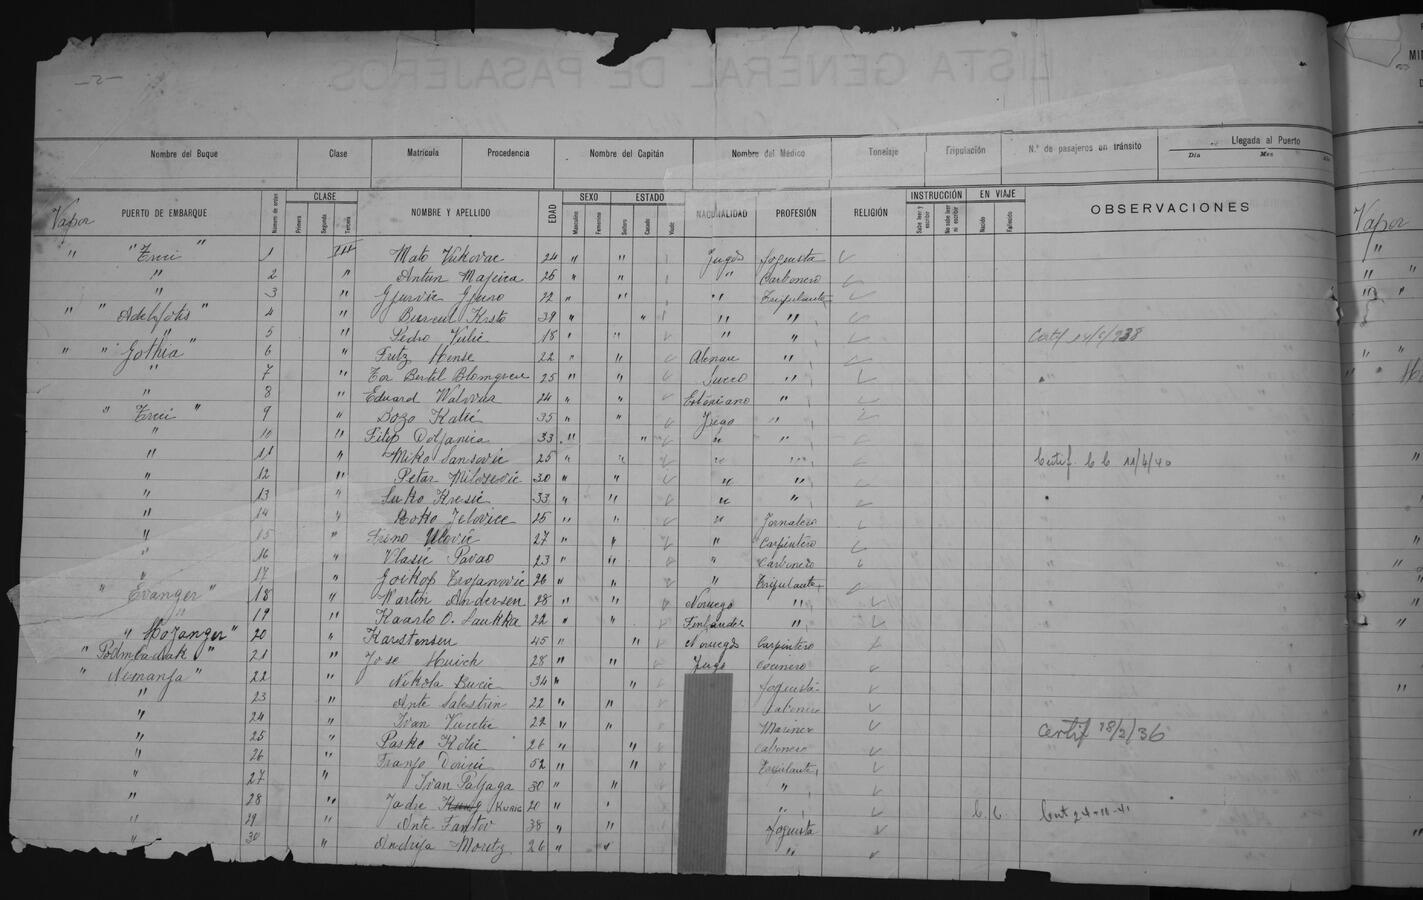 —2—
LISTA GENERAL DE PASAJEROS
Nombre del Buque Clase Matrícula Procedencia Nombre del Capitán Nombre del Médico Tonelaje Tripulación N.° de pasajeros en tránsito Llegada al Puerto
Día Mes
Vapor PUERTO DE EMBARQUE Número de orden CLASE Primera Segunda Tercera NOMBRE Y APELLIDO EDAD SEXO Masculino Femenino ESTADO Soltero Casado Viudo NACIONALIDAD PROFESIÓN RELIGIÓN INSTRUCCIÓN Sabe leer y escribir No sabe leer ni escribir EN VIAJE Nacido Fallecido OBSERVACIONES Vapor
" " " 1 III Mato Vukovac 24 " " foguista
" 2 " Antun Majcica 26 " " " Carbonero
" 3 " Gjurvic Gjuro 22 " " " Tripulante
" " Adelfotis " 4 " Krsto 29 " " " "
" 5 " Pedro Vulic 18 " " " " Certif 14/6/938
" " Gothia " 6 " Fritz Hense 22 " " Aleman "
" 7 " Tor Bertil Blomgren 25 " " Sueco "
" 8 " Eduard 24 " " Estoniano "
" " 9 " Bozo Katic 35 " " Jugo "
" 10 " Filip 33 " " " "
" 11 " Miko 25 " " " " Certif. C C 11/4/40
" 12 " Petar Milosevic 30 " " " "
" 13 " Luko Kresic 33 " " " "
" 14 " Roko Jelovice 25 " " " Jornalero
" 15 " 27 " " " Carpintero
" 16 " Vlasic Pavao 23 " " " Carbonero
" 17 " Gojkop Trojanovic 26 " " " Tripulante
" Evanger " 18 " Martin Andersen 28 " " Noruego "
" 19 " Kaarlo O. Laukka 22 " " "
" Hozanger " 20 " Karstensen 45 " " Noruego Carpintero
" " 21 " Jose Huich 28 " " Jugo Cocinero
" Nemanja " 22 " Nikola Bucic 34 " " foguista
" 23 " Ante 22 " " Carbonero
" 24 " Ivan Vucetic 22 " " Marinero
" 25 " Pasko Kolic 26 " " Carbonero Certif 18/2/36
" 26 " Franjo 52 " " Tripulante
" 27 " Ivan Paljaga 30 " " "
" 28 " Jadre KURIC 20 " " " C C Cert 24-10-41
" 29 " Ante Fantov 38 " " foguista
" 30 " Andrija Moritz 26 " " "